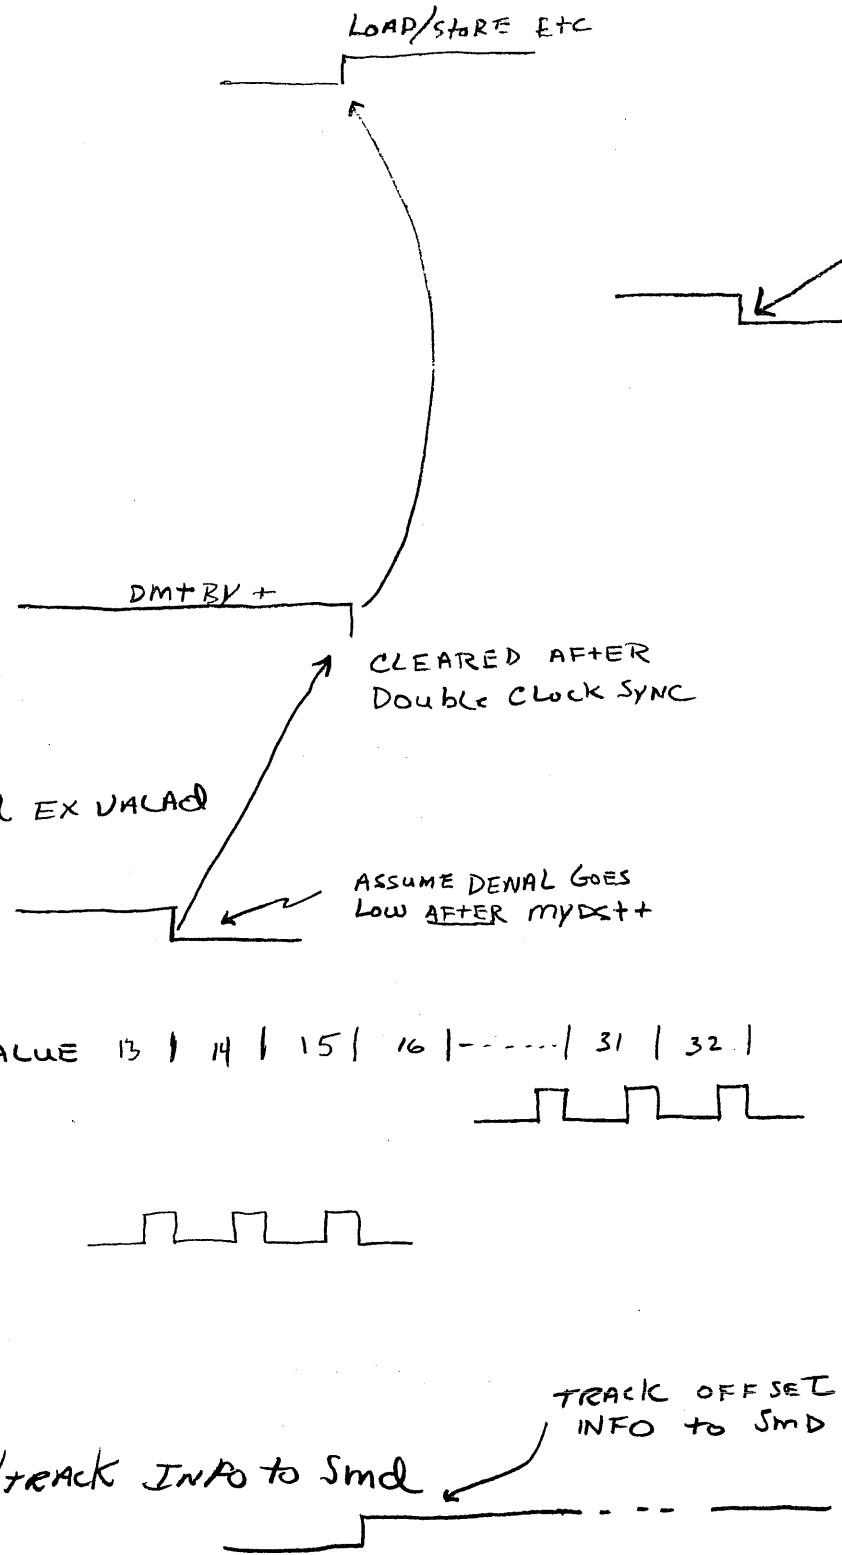 LOAD/StORE EtC
DMtBY +
CLEARED AFtER
DoubLe CLock SyNC
EX VALAd
ASSUME DENAL GOES
Low AFtER
VALUE 13 | 14 | 15 | 16 |------| 31 | 32 |
TRACK OFFSET
INFO to SmD
/tRACK INFO to Smd